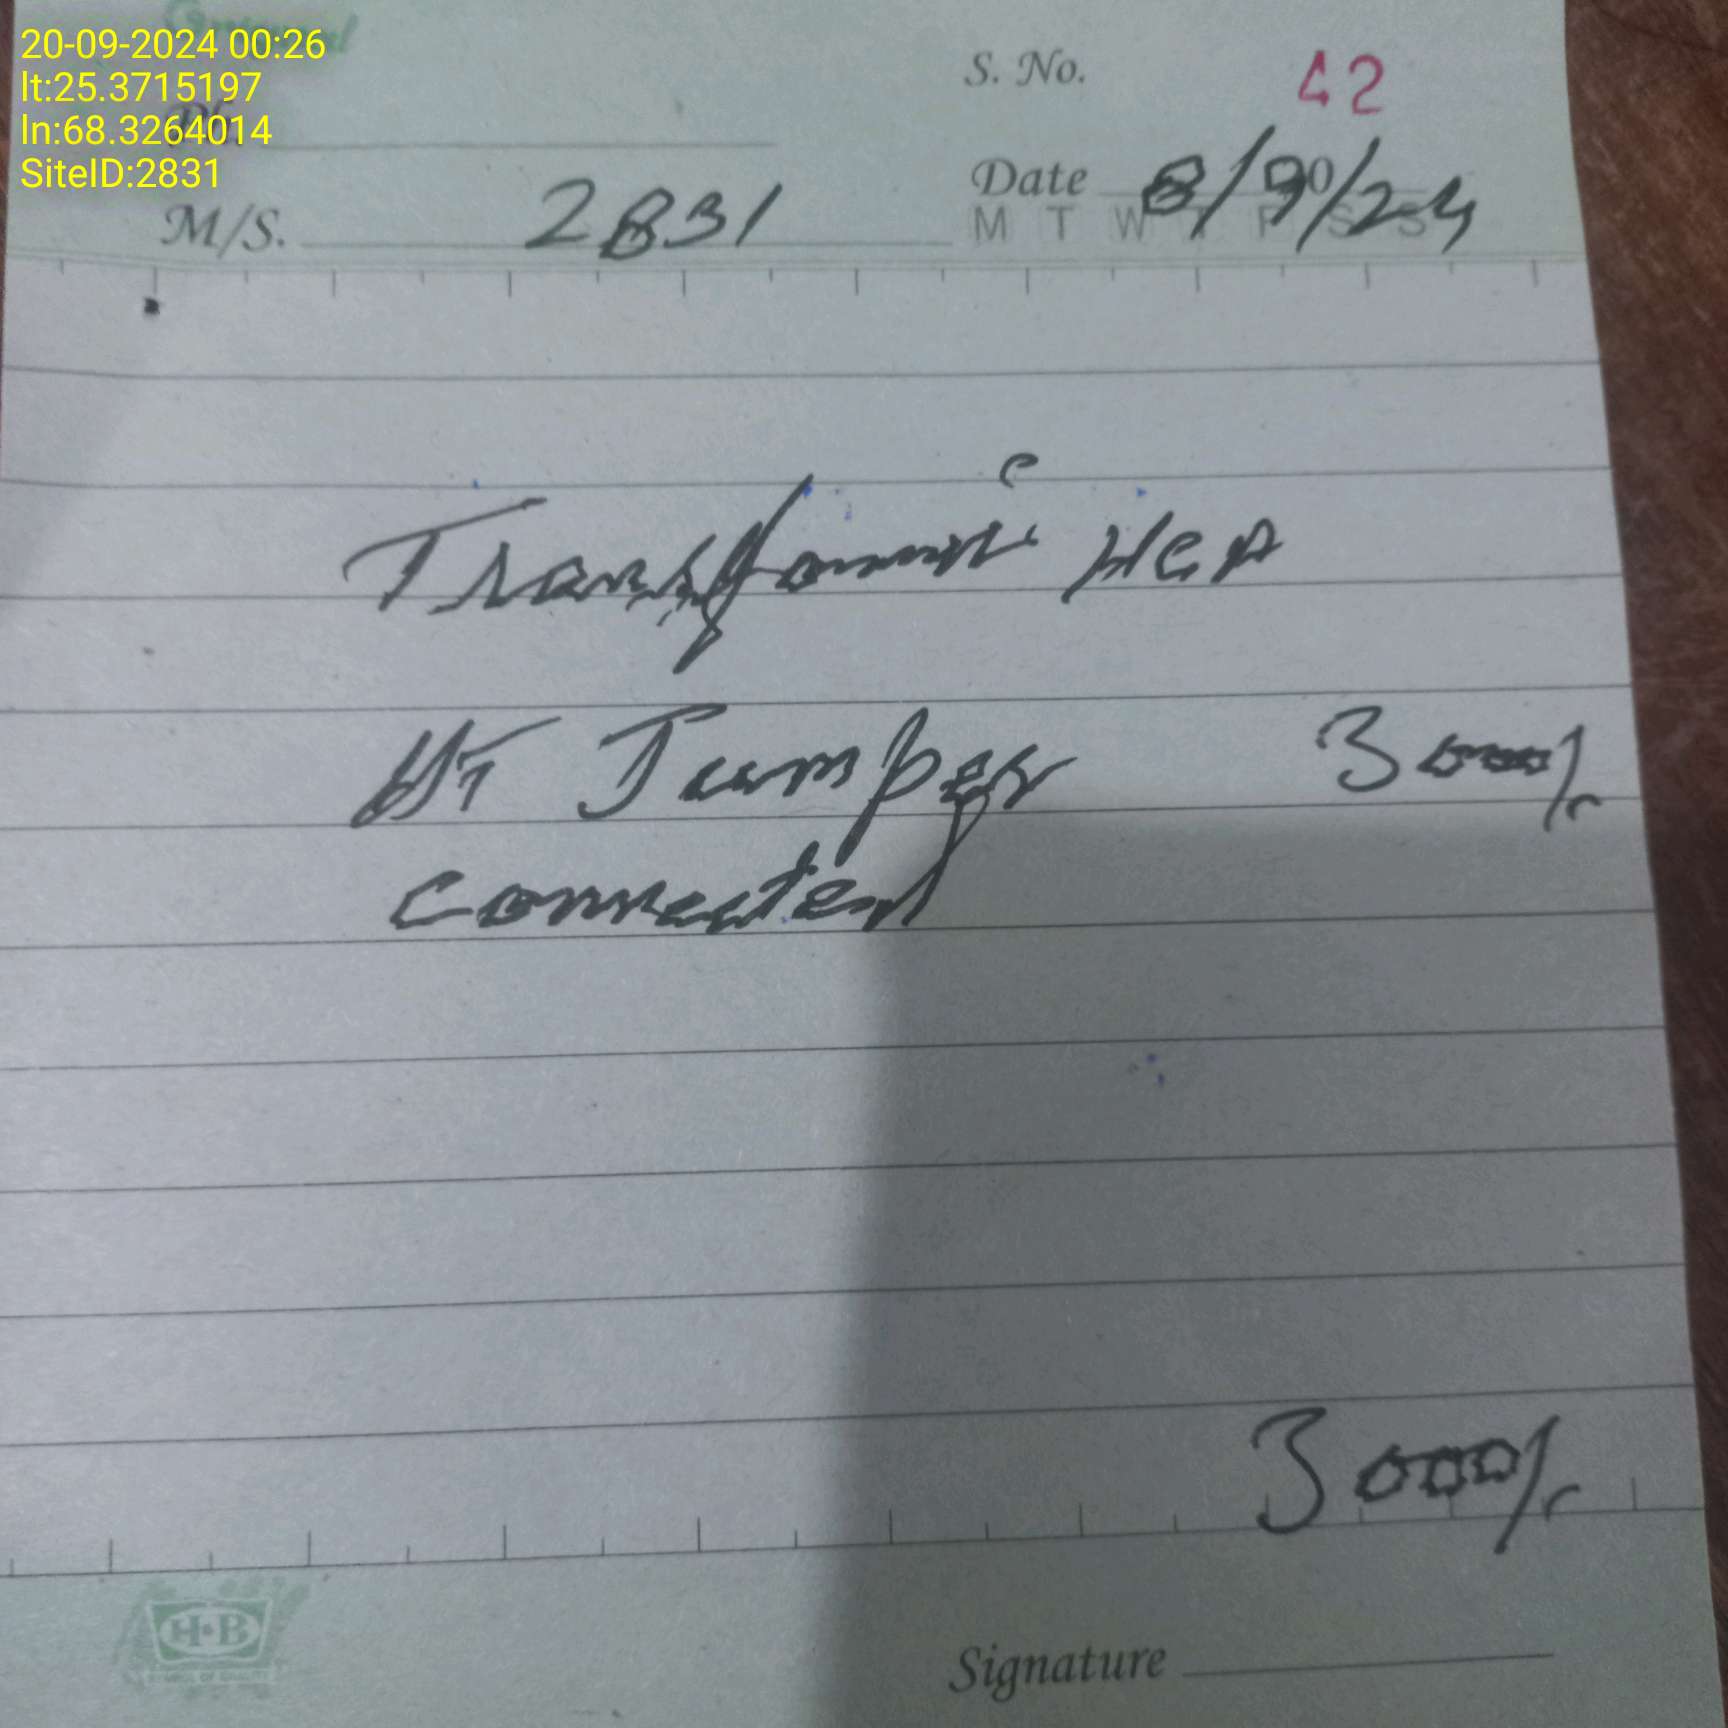 General
20-09-2024 00:26
lt:25.3715197
ln:68.3264014
SiteID:2831
S. No. 42
Date 8/9/24
M T W T F S S
M/S. 2831
Transformer
HT Jumper 3000/-
connected
3000/-
H·B
Signature